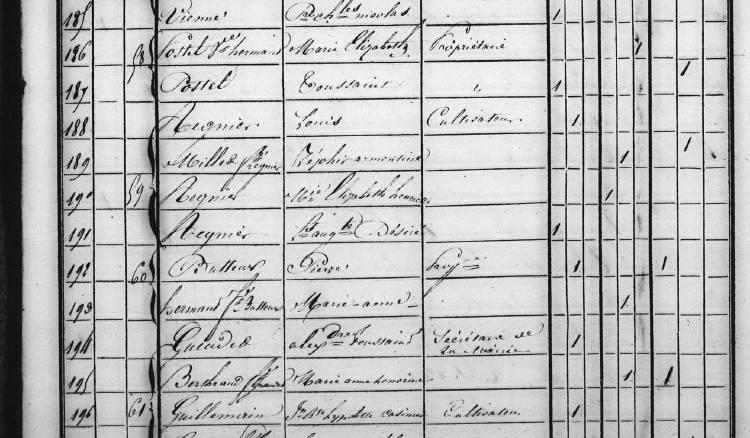 185 Vienne Pre Ch les nicolas 1
186 58 Postel Ve hermand Marie Elizabeth Propriétaire 1 1
187 Postel Toussaint " 1
188 Regnier Louis Cultivateur 1
189 Millet fe Regnier Zéphir armentine 1 1
190 59 Regnier Mie Elizabeth 1
191 Regnier aug te Désiré 1
192 60 Butteux Pierre 1 1
193 hermand fe Butteux Marie-anne 1
194 alex dre toussaint Sécrétaire de la mairie 1
195 Bertheaud fe Marie anne honorine 1 1
196 61 Guillemain Jn Bte hypolitte casimir Cultivateur 1